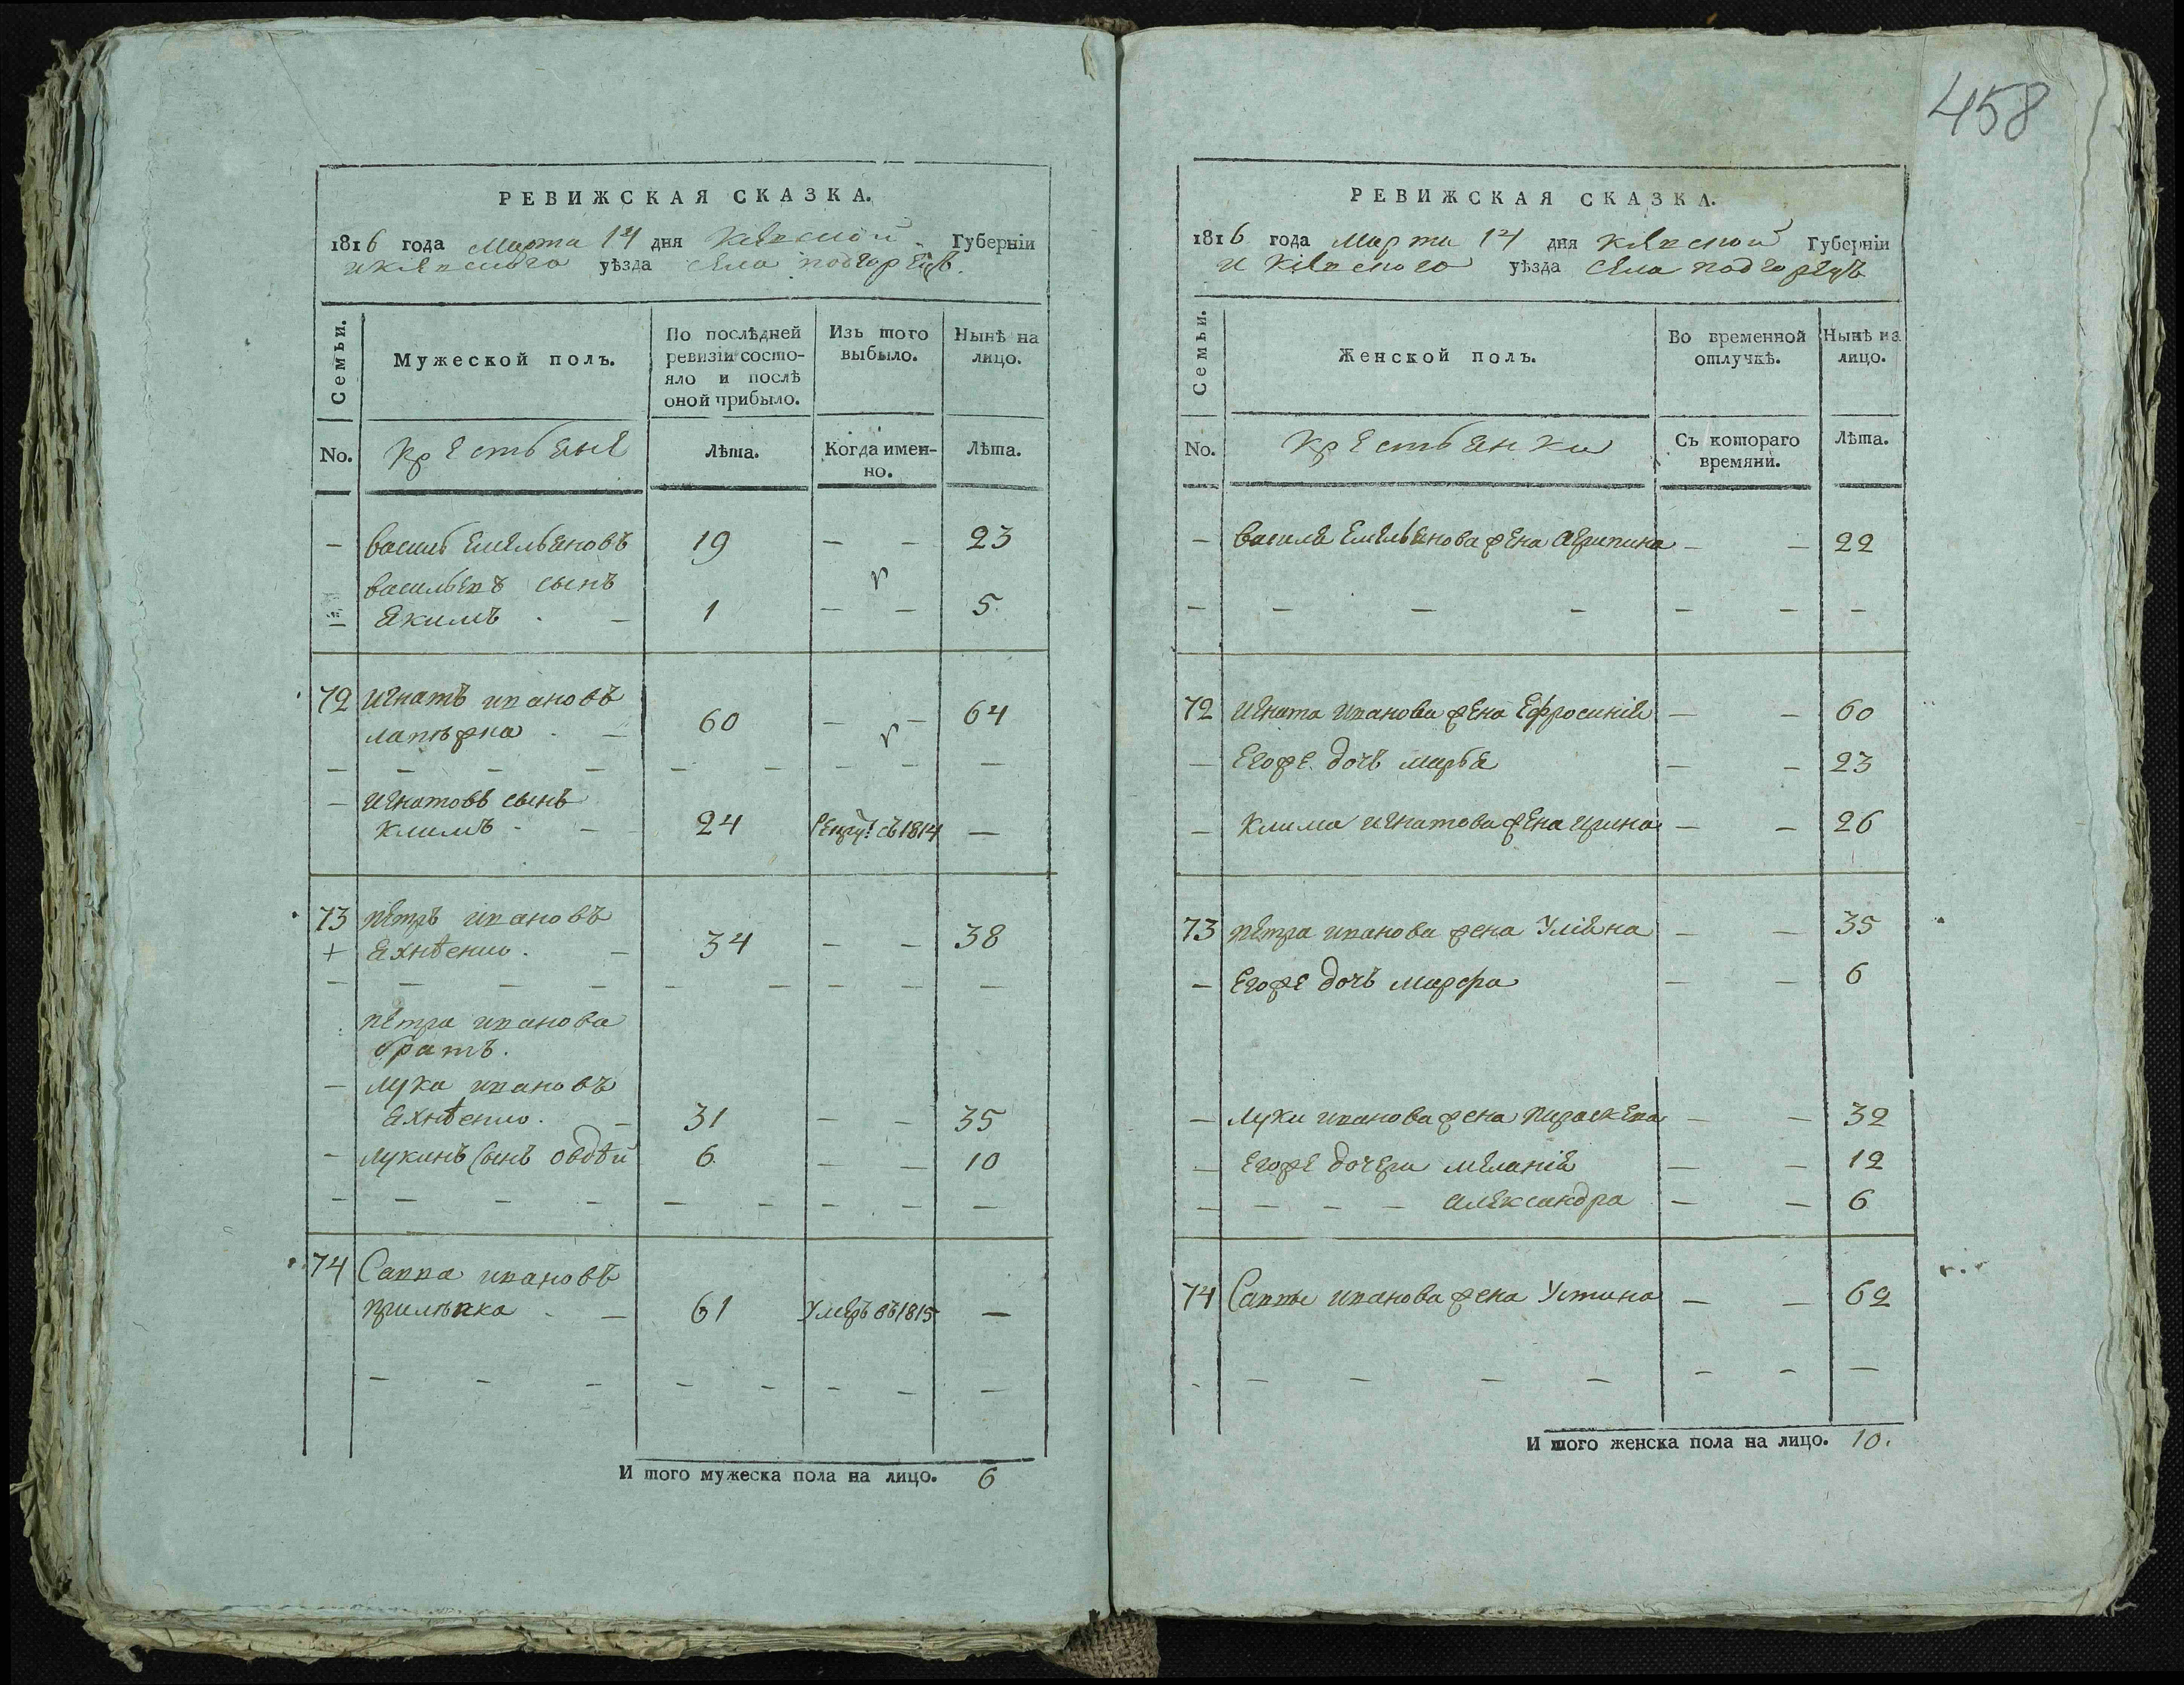 458
РЕВИЖСКАЯ СКАЗКА.
1816 года Марта 14 дня Кіевской Губерніи
и Кіевского уѣзда села подгорецъ.
Семьи.
Мужеской полъ.
По послѣдней
ревизіи состо-
яло и послѣ
оной прибыло.
Изъ того
выбыло.
Нынѣ на
лицо.
No.
Крестьяне
Лѣта.
Когда имен-
но.
Лѣта.
— василь Емельяновъ 19 — — 23
васильевъ сынъ
Якимъ . — 1 — — 5.
72 Игнатъ ивановъ
. — 60 — — 64
— — — — — — — — —
— Игнатовъ сынъ
Климъ . — 24 въ 1814 —
73 петръ ивановъ
+ Яхнѣенко . — 34 — — 38
— — — — — — — — —
петра иванова
братъ.
— лука ивановъ
Яхнѣенко . — 31 — — 35
— лукинъ сынъ овдѣй 6 — — 10
— — — — — — — — —
74 Савва ивановъ
. — 61 Умеръ въ 1815 —
— — — — — — — —
И того мужеска пола на лицо. 6
РЕВИЖСКАЯ СКАЗКА.
1816 года Марта 14 дня Кіевской Губерніи
и Кіевского уѣзда села подгорецъ
Семьи.
Женской полъ.
Во временной
отлучкѣ.
Нынѣ на
лицо.
No.
Крестьянки
Съ котораго
времяни.
Лѣта.
— василя Емельянова жена Агрипина — — 22
— — — — — — —
72 Игната иванова жена Ефросинія — — 60
— Егоже дочь марья — — 23
— Клима игнатова жена ирина — — 26
73 петра иванова жена Уліяна — — 35
— Егоже дочь марфа — — 6
— луки иванова жена параскева — — 32
— Егоже дочери меланія — — 12
— — — — александра — — 6
74 Саввы иванова жена Устина — — 62
— — — — — — — —
И того женска пола на лицо. 10.